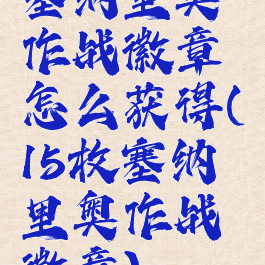 塞纳里奥
作战徽章
怎么获得(
15枚塞纳
里奥作战
徽章)